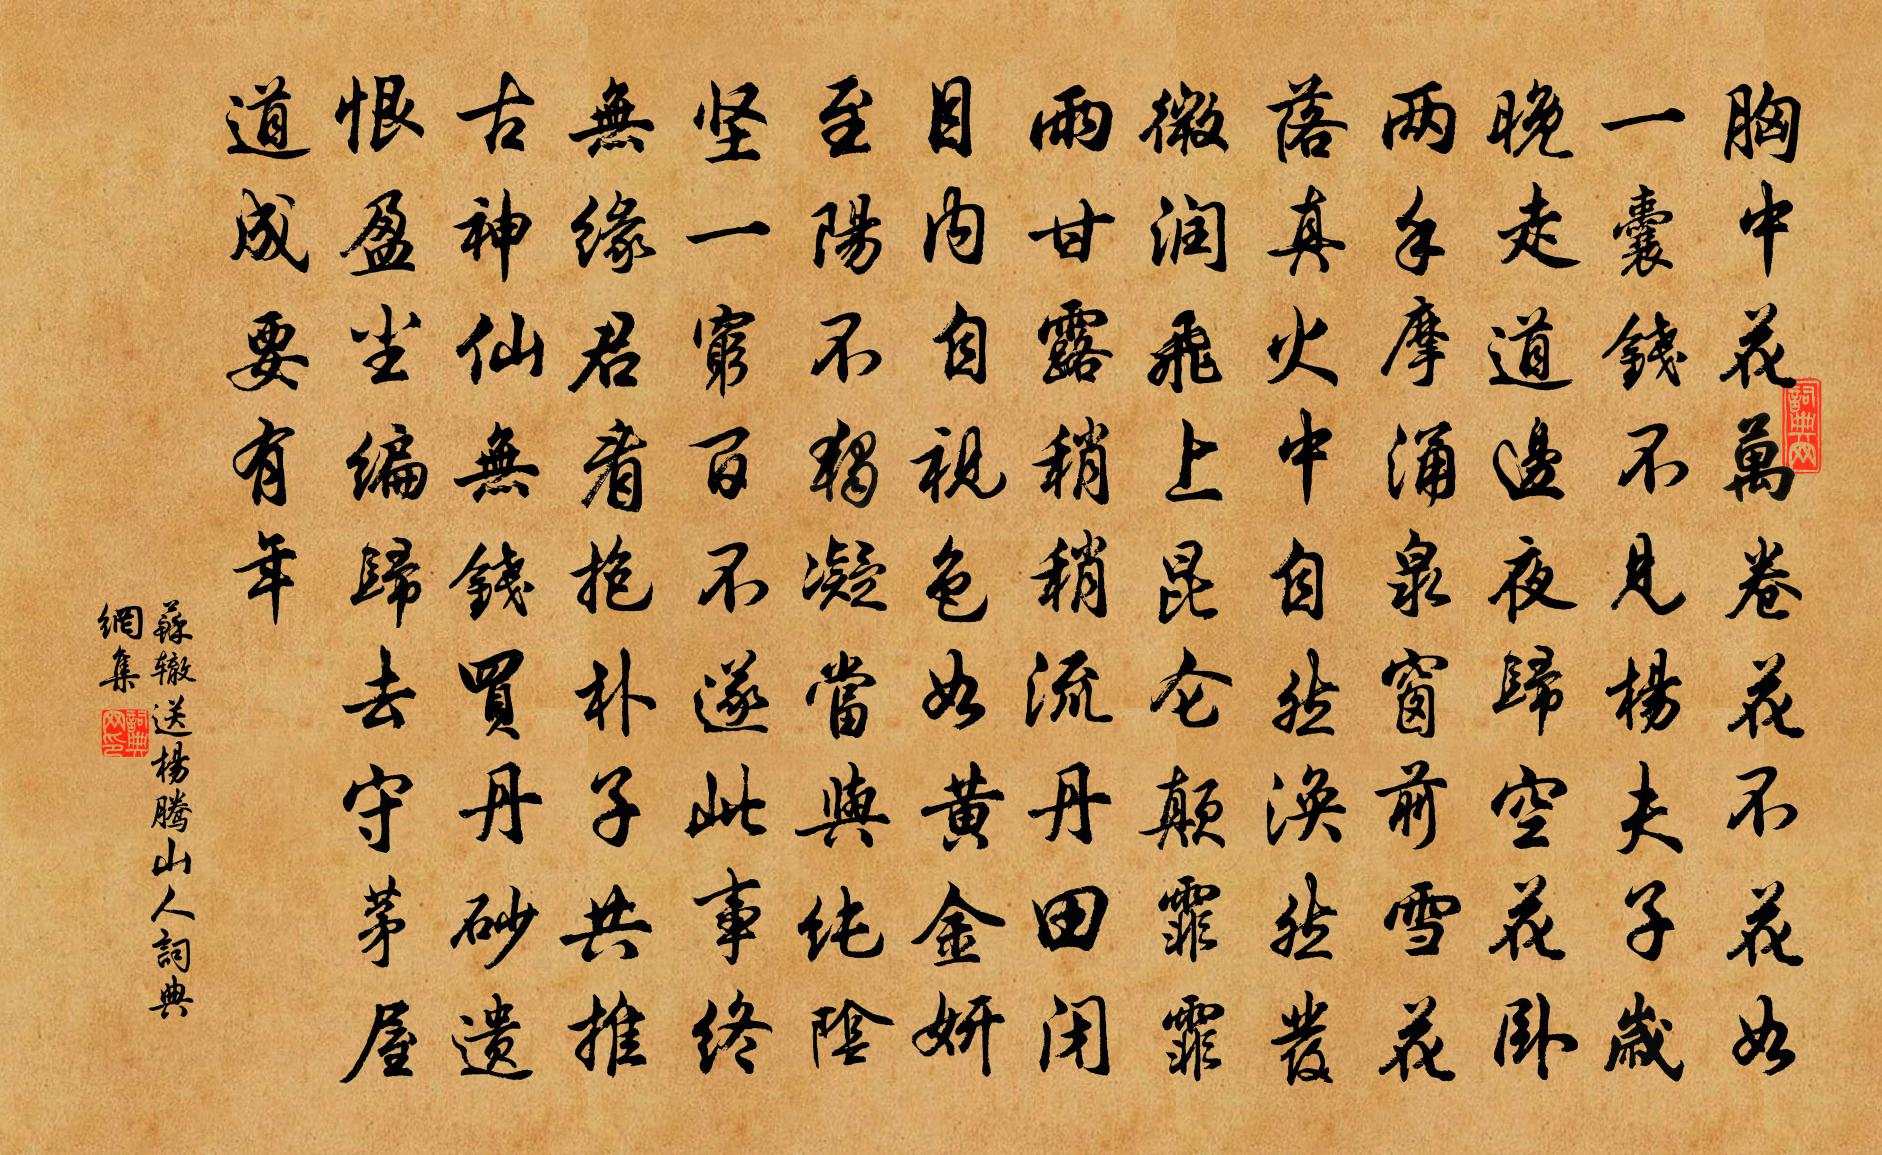 胸中花萬卷花不花如
一囊錢不見楊夫子歲
晚走道邊夜歸空花卧
两手摩涌泉窗前雪花
落真火中自然涣然發
微润飛上昆仑颠霏霏
雨甘露稍稍流丹田闭
目内自視色如黄金妍
至陽不獨凝當與纯陰
坚一窮百不遂此事终
無缘君看抱朴子共推
古神仙無錢買丹砂遗
恨盈尘编歸去守茅屋
道成要有年
蘇辙送楊腾山人詞典
網集
詞典网
詞典网印